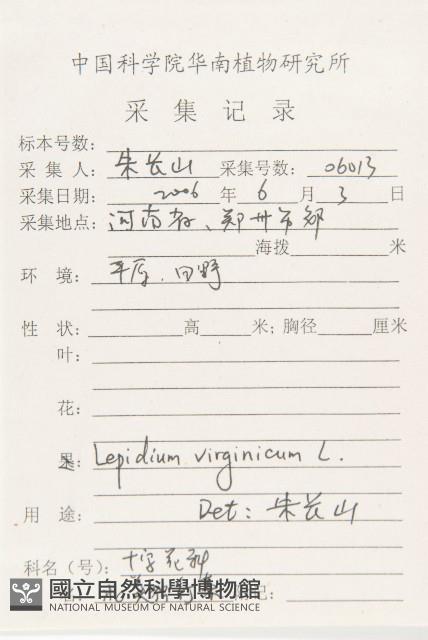 中国科学院华南植物研究所
采 集 记 录
标本号数：
采 集 人： 朱长山 采集号数： 06013
采集日期： 2006 年 6 月 3 日
采集地点： 河南省、郑州市郊
海拨 米
环 境： 平原．田野
性 状： 高 米；胸径 厘米
叶：
花：
果：
Lepidium virginicum L.
用 途：
Det：朱长山
科名（号）： 十字花科
國立自然科學博物館
NATIONAL MUSEUM OF NATURAL SCIENCE